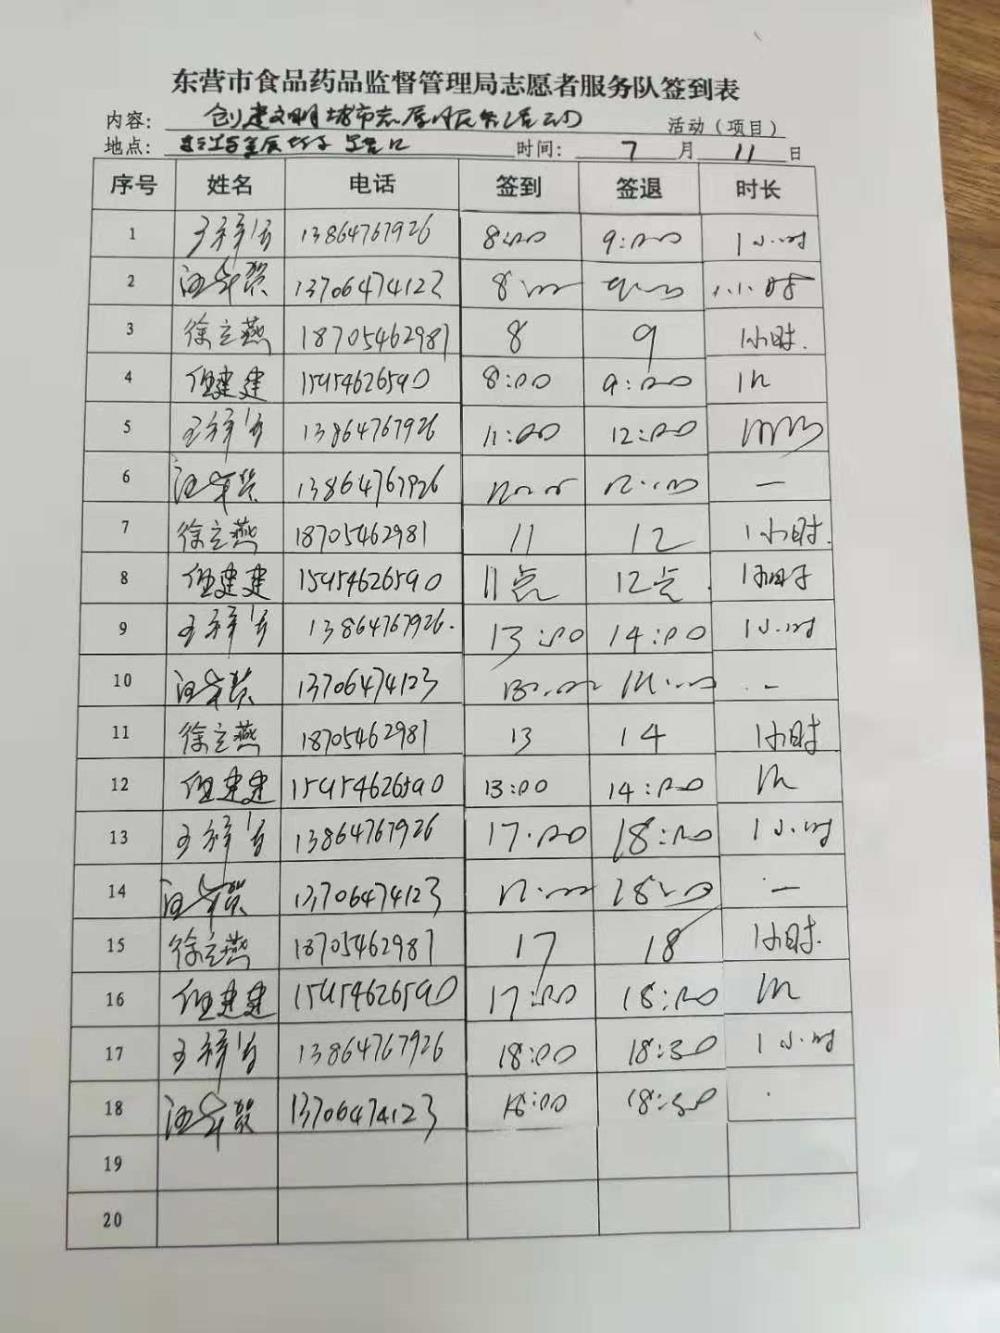 东营市食品药品监督管理局志愿者服务队签到表
内容： 创建文明城市志愿服务活动 活动（项目）
地点： 路口 时间： 7 月 11 日
序号 姓名 电话 签到 签退 时长
1 13864767926 8:00 9:00 1小时
2 13706474123 8:00 9:00 小时
3 徐立燕 18705462981 8 9 1小时.
4 建建 15954626590 8:00 9:00 1h
5 13864767926 11:00 12:00
6 13864767926 —
7 徐立燕 18705462981 11 12 1小时.
8 建建 15954626590 11点 12点. 1小时
9 13864767926. 13:00 14:00 1小时
10 13706474123 13:00 14:00 —
11 徐立燕 18705462981 13 14 1小时
12 建建 15954626590 13:00 14:00 1h
13 13864767926 17:00 18:00 1小时
14 13706474123 17:00 18:00 —
15 徐立燕 18705462981 17 18 1小时.
16 建建 15954626590 17:00 18:00 1h
17 13864767926 18:00 18:30 1小时
18 13706474123 18:00 18:30
19
20